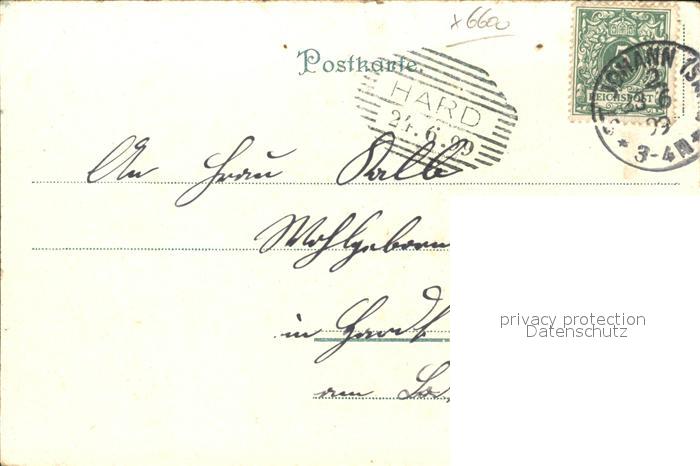 x6600
Postkarte
HARD
24.6.99
REICHSPOST
3-4N
An Frau Kalb
Wohlgeboren
in Hardt
am
privacy protection
Datenschutz